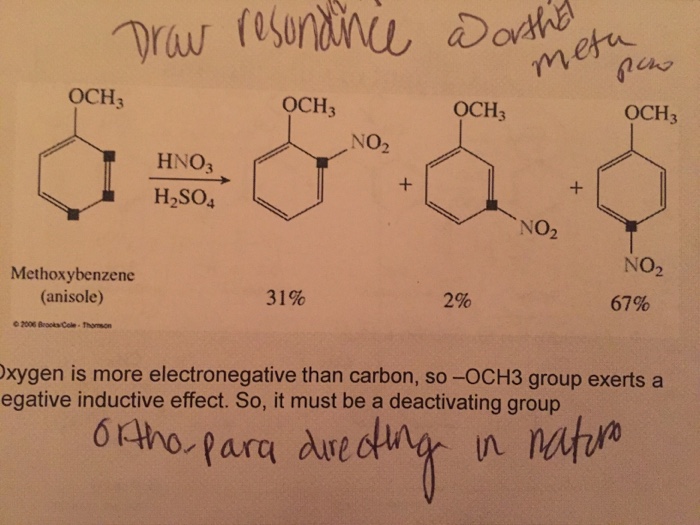 Draw resonance @ ortho
meta
para
OCH3 OCH3 OCH3 OCH3
NO2
HNO3
H2SO4
+ +
NO2
NO2
Methoxybenzene
(anisole)
31% 2% 67%
© 2006 Brooks/Cole - Thomson
Oxygen is more electronegative than carbon, so –OCH3 group exerts a
egative inductive effect. So, it must be a deactivating group
Ortho-para directing in nature